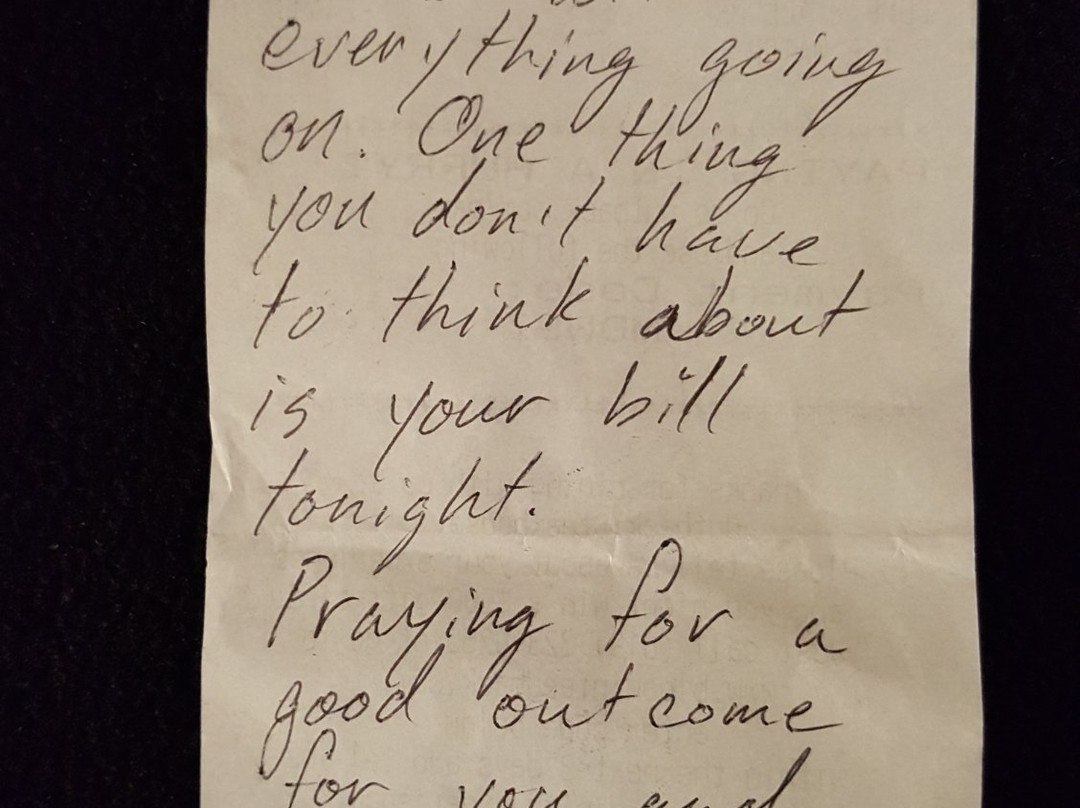 everything going
on. One thing
you don't have
to think about
is your bill
tonight.
Praying for a
good outcome
for you and